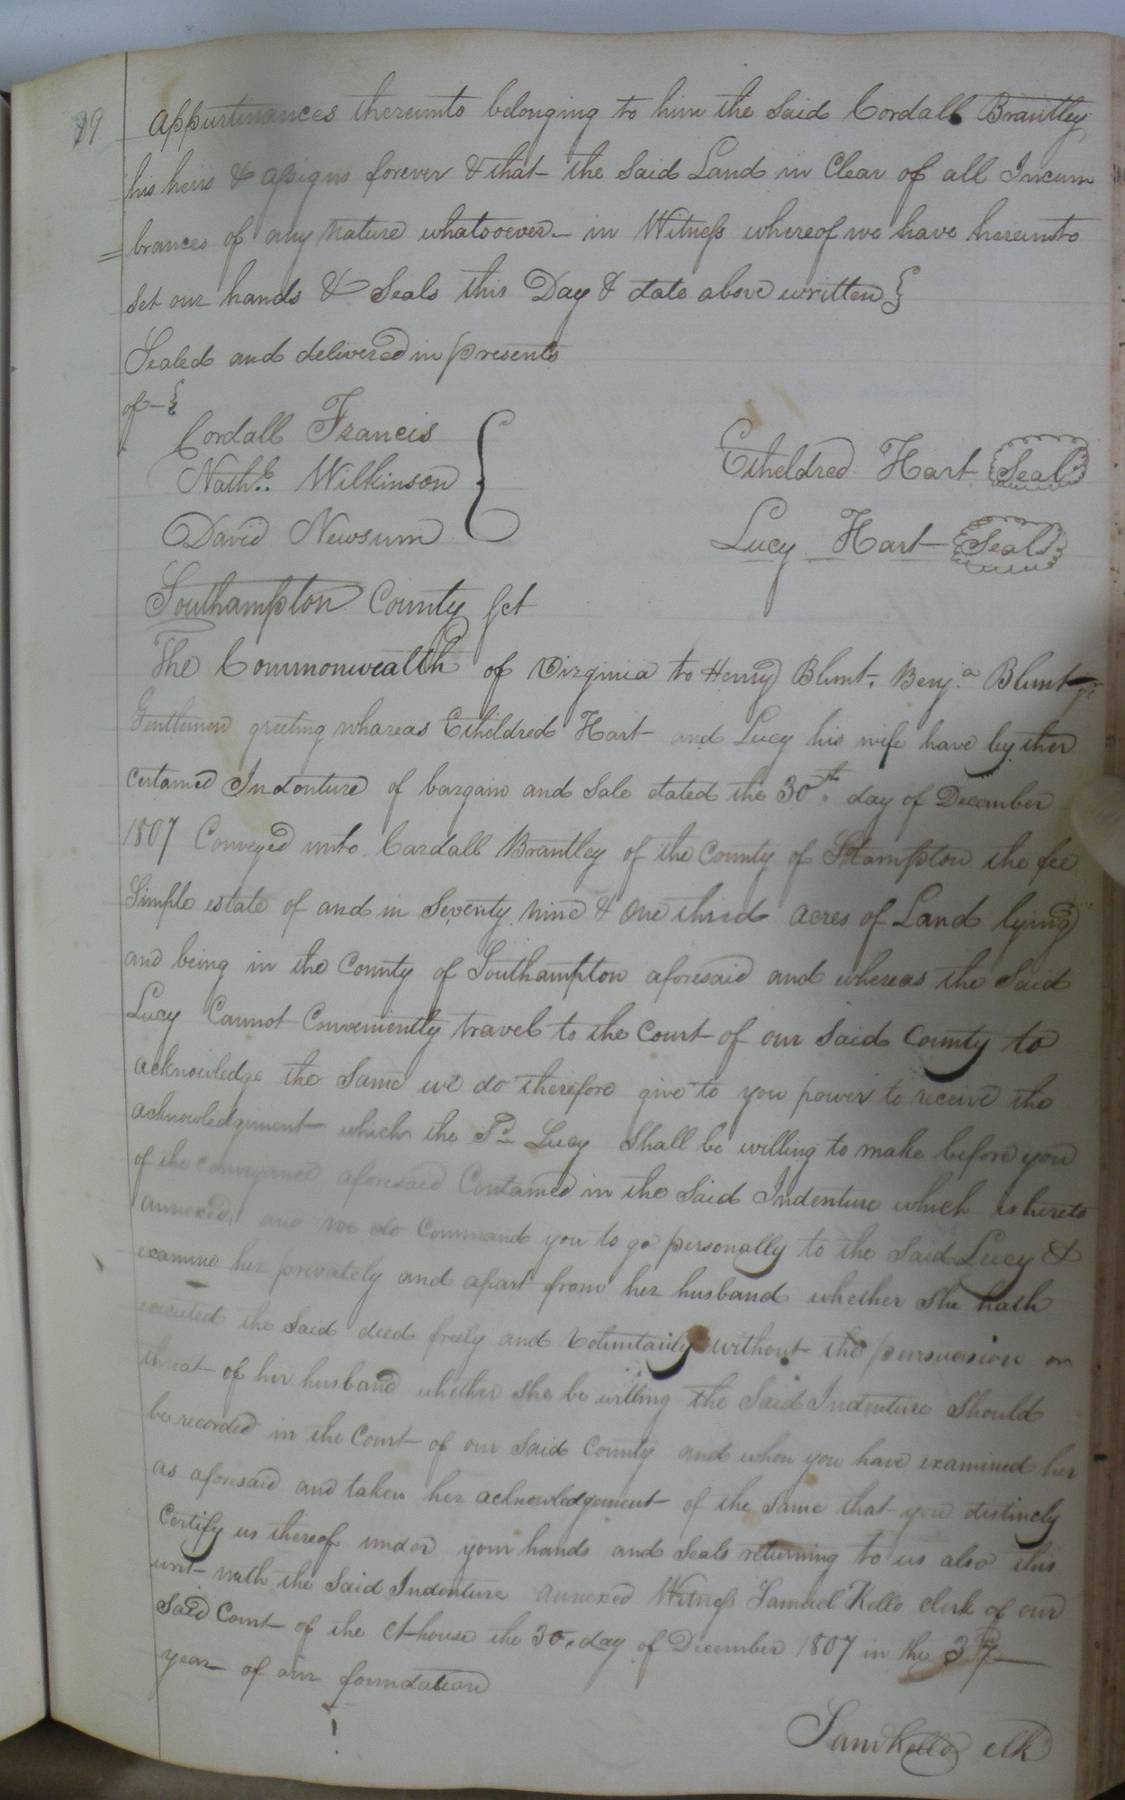 79
appurtinances thereunto belonging to him the Said Cordall Brantley
his heirs & assigns forever & that the Said Land in Clear of all Incum
= brances of any Nature whatsoever - in Witness whereof we have hereunto
Set our hands & Seals this Day & date above written }
Sealed and delivered in presents
of - {
Cordall Francis
Nathl. Wilkinson
David Newsum
Etheldred Hart Seal
Lucy Hart Seal
Southampton County Sct
The Commonwealth of Virginia to Henry Blunt. Benja. Blunt jr.
Gentlemen greeting whareas Etheldred Hart and Lucy his wife have by ther
certained Indenture of bargain and Sale dated the 30th. day of December
1807 Conveyed unto Cardall Brantley of the County of SHampton the fee
Simple estate of and in Seventy nine & one third acres of Land lying
and being in the County of Southampton aforesaid and whereas the Said
Lucy Cannot Conveniently travel to the Court of our Said County to
acknowledge the Same we do therefore give to you power to receive the
acknowledgement which the Sd. Lucy Shall be willing to make before you
of the conveyance aforesaid Contained in the Said Indenture which is hereto
annexed, and we do Command you to go personally to the Said Lucy &
examine her privately and apart from her husband whether She hath
executed the Said deed freely and Voluntarily without the persuasion or
threat of her husband whether She be willing the Said Indenture Should
be recorded in the Court of our Said County and when you have examined her
as aforesaid and taken her acknowledgement of the Same that you distincly
Certify us thereof under your hands and Seals returning to us also this
writ with the Said Indenture annexed Witness Samuel Kello clerk of our
Said Court of the Ct house the 30. day of December 1807 in the 32
year of our foundation
Saml Kello clk